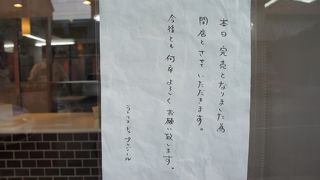 本日 完売となりました為
閉店とさせていただきます。
今後とも 何卒よろしくお願い致します。